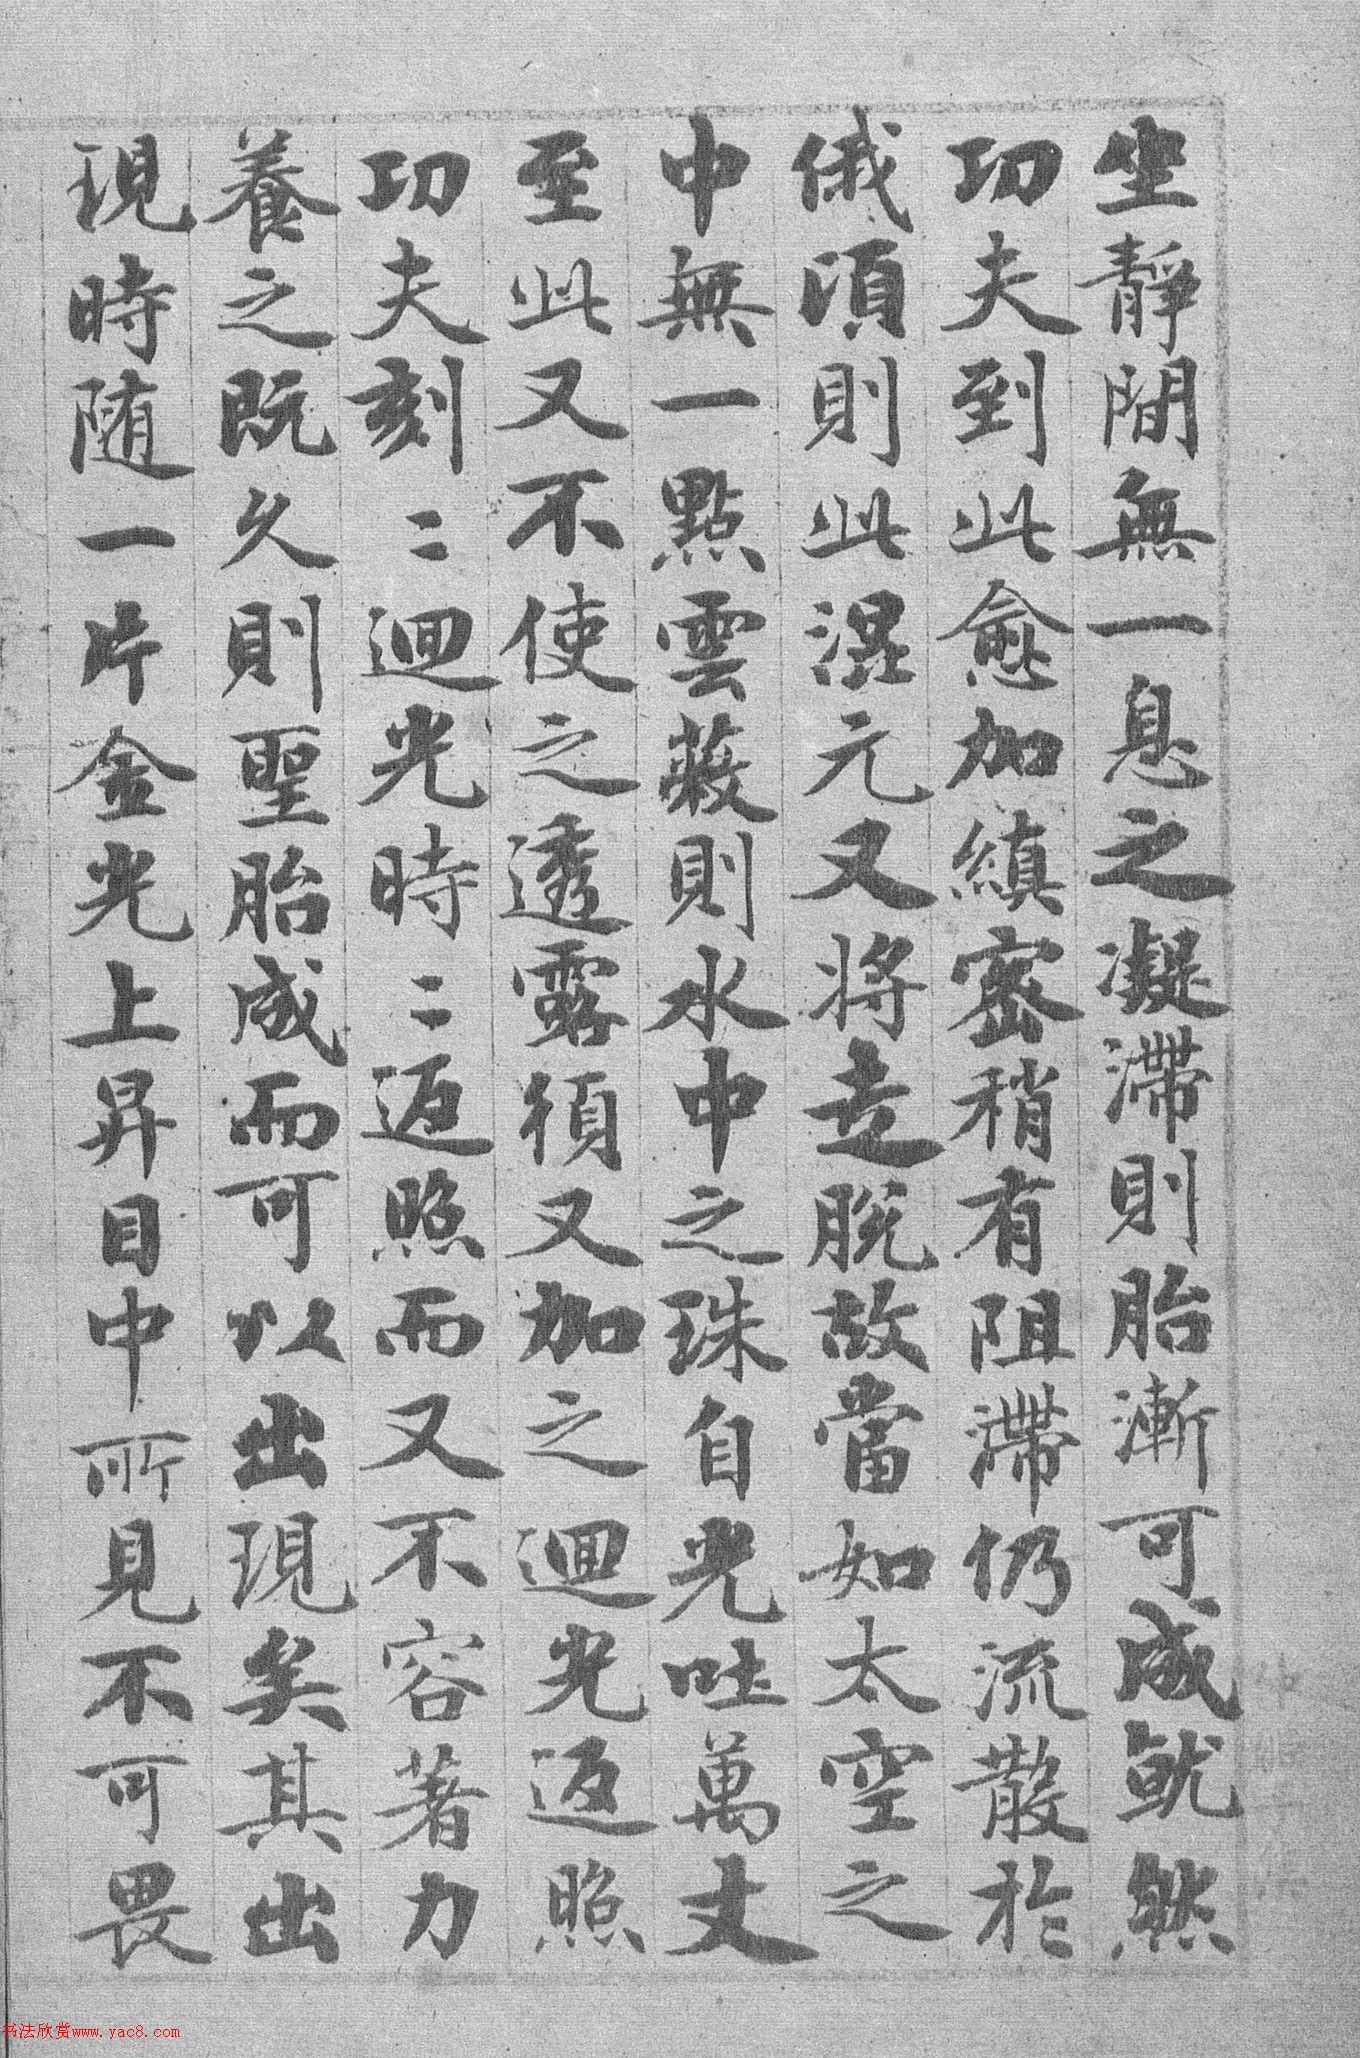 坐靜間無一息之凝滯則胎漸可成魷然
功夫到此愈加縝密稍有阻滯仍流散於
俄頃則此混元又將走脫故當如太空之
中無一點雲蔽則水中之珠自光吐萬丈
至此又不使之透露須又加之迴光返照
功夫刻〻迴光時〻返照而又不容著力
養之既久則聖胎成而可以出現矣其出
現時随一片金光上昇目中所見不可畏
书法欣赏www.yac8.com